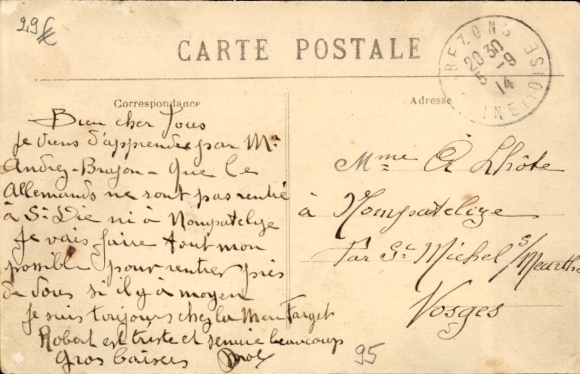 29 €
CARTE POSTALE
BEZONS
20 30
5 - 9
14
SEINE-ET-OISE
Correspondance
Bien cher Tous
je viens d'apprendre par Mr
Andrez-Brajon - que le
Allemands ne sont pas rentré
à St Dié ni à Nompatelize
Je vais faire tout mon
possible pour rentrer près
de Vous si il y a moyen
Je suis toujours chez la Men Farget
Robert est triste et s'ennuie beaucoup
Gros baisers
Adresse
Mme A Lhôte
à Nompatelize
Par St Michel s/Meurthe
Vosges
95